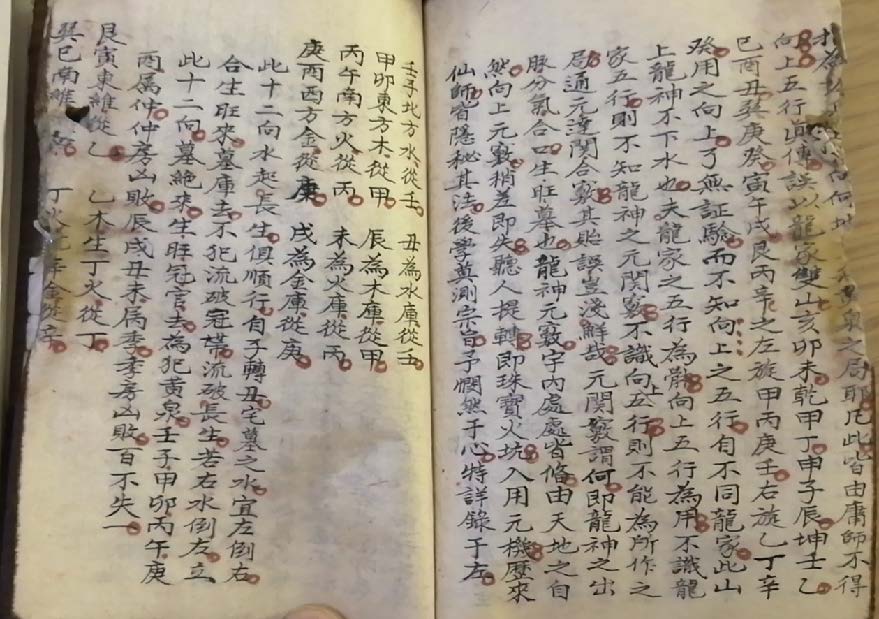 黃泉之局耶凡此皆由庸師不得
向上五行真傳誤以龍家雙山亥卯未乾甲丁申子辰坤壬乙
巳酉丑巽庚癸寅午戌艮丙辛之左旋甲丙庚壬右旋乙丁辛
癸用之向上了無証驗而不知向上之五行自不同龍家此山
上龍神不下水也夫龍家之五行為骸向上五行為用不識龍
家五行則不知龍神之元関竅不識向五行則不能為所作之
局通元達関合竅其貽誤豈淺鮮哉元関竅謂何即龍神之出
脉分氣合口生旺墓也龍神元竅宇內處處皆脩由天地之自
然向上元竅稍差即失聽人梃轉即珠寶火坑入用元機歷來
仙師皆隱秘其法後孝莫測宗旨予憫然于心特詳錄于左
壬子地方水從壬　丑為水庫從壬
甲卯東方木從甲　辰為木庫從甲
丙午南方火從丙　未為火庫從丙
庚酉西方金從庚　戌為金庫從庚
此十二向水起長生俱順行自子轉丑宅墓之水宜左倒右
合生旺來墓庫去不犯流破冠帶流破長生若右水倒左立
此十二向墓絕來生旺冠官去為犯黃泉壬子甲卯丙午庚
酉属仲仲房凶敗辰戌丑未属季季房凶敗百不失一
艮寅東維從乙　乙木生丁火從丁
巽巳南維　丁火